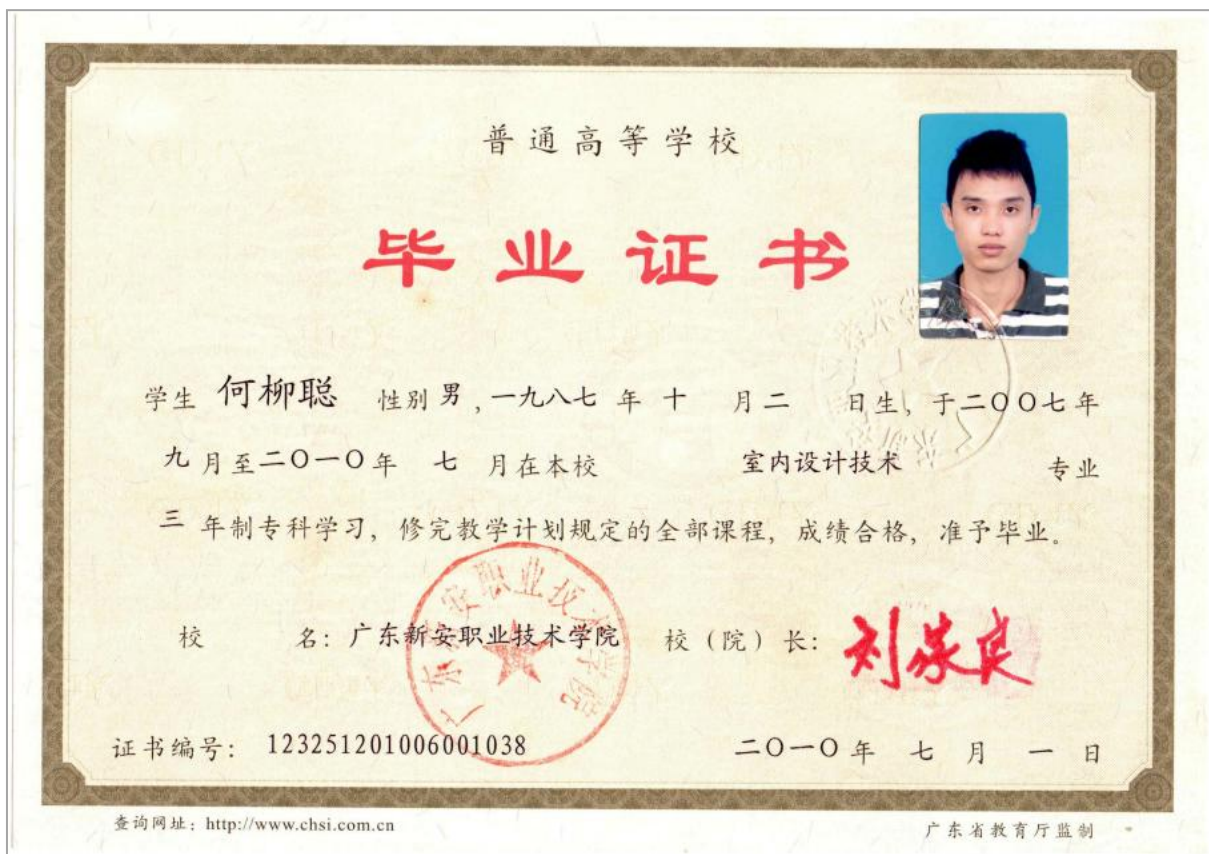 普通高等学校
毕业证书
学生 何柳聪 性别 男 ,一九八七 年 十 月 二 日生, 于二〇〇七年
九 月至二〇一〇年 七 月在本校 室内设计技术 专业
三 年制专科学习, 修完教学计划规定的全部课程, 成绩合格, 准予毕业。
校 名: 广东新安职业技术学院 校(院)长:
广东新安职业技术学院
证书编号: 123251201006001038 二〇一〇年 七 月 一 日
查询网址: http://www.chsi.com.cn 广东省教育厅监制